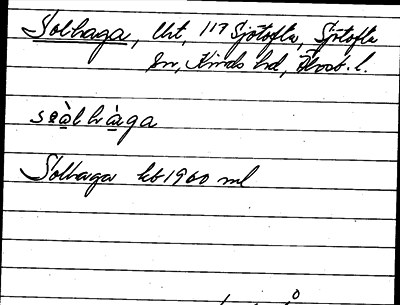 Solhaga, lht, 1¹⁷ Sjötofta, Sjötofta
sn, Kinds hd, Älvsb. l.
sɷ̀lhàga
Solhaga kb 1960 ml